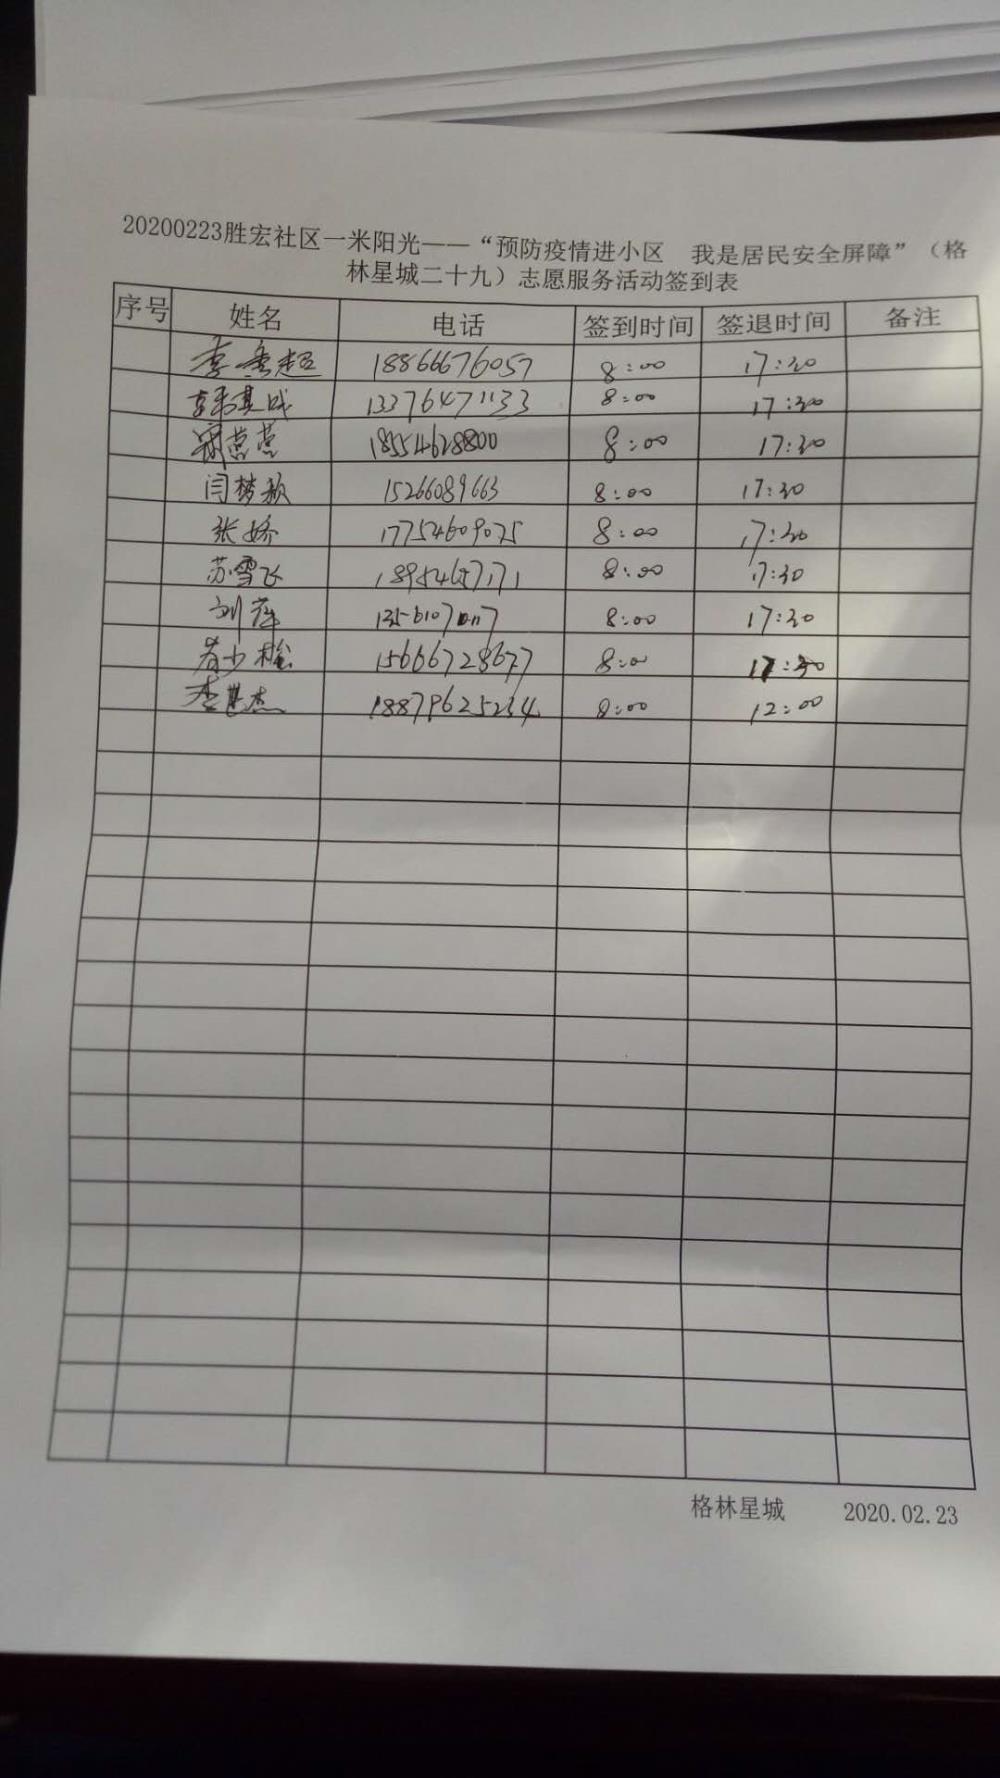 20200223胜宏社区一米阳光——“预防疫情进小区 我是居民安全屏障”（格
林星城二十九）志愿服务活动签到表
序号 姓名 电话 签到时间 签退时间 备注
18866676057 8:00 17:30
13376471133 8:00 17:30
18554628800 8:00 17:30
闫梦颖 15266089663 8:00 17:30
张娇 17754609075 8:00 17:30
苏雪飞 8:00 17:30
刘萍 8:00 17:30
15666728677 8:00 17:30
18879625234 8:00 12:00
格林星城 2020.02.23